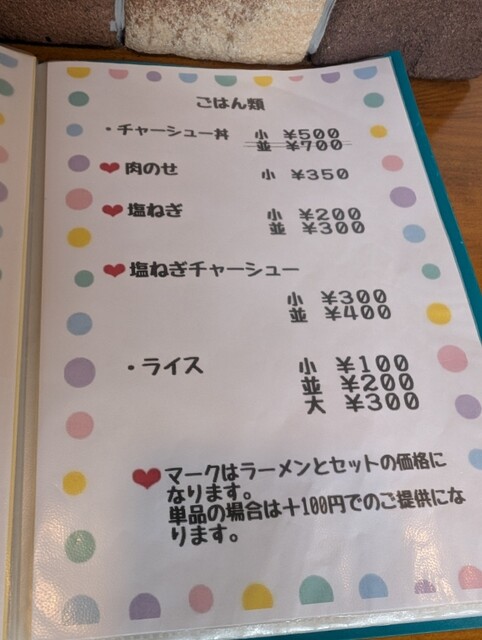 ごはん類
・チャーシュー丼 小 ¥500
並 ¥700
❤肉のせ 小 ¥350
❤塩ねぎ 小 ¥200
並 ¥300
❤塩ねぎチャーシュー
小 ¥300
並 ¥400
・ライス 小 ¥100
並 ¥200
大 ¥300
❤マークはラーメンとセットの価格に
なります。
単品の場合は+100円でのご提供にな
ります。